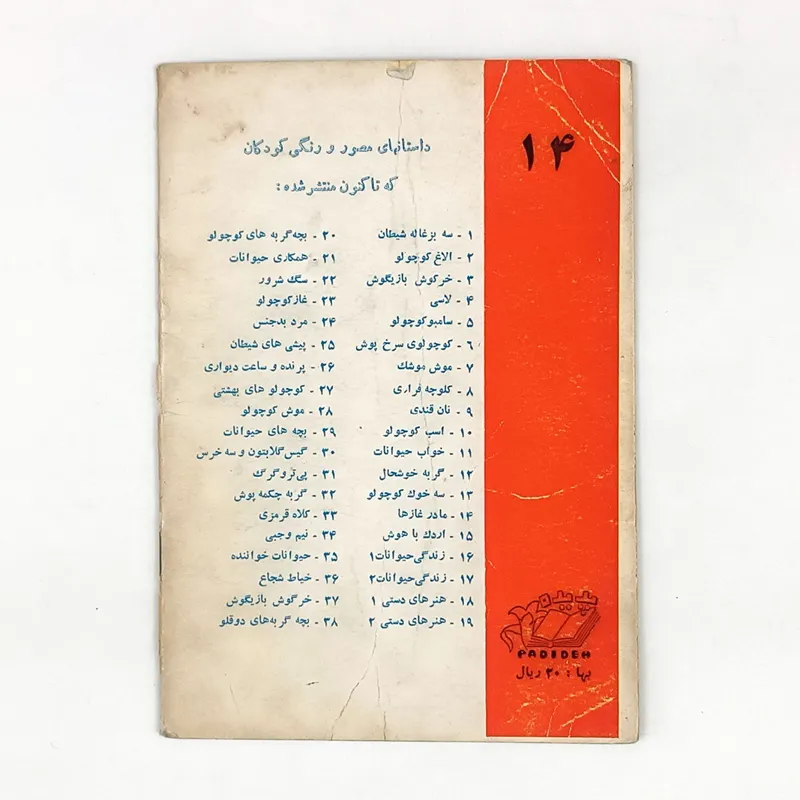 داستانهای مصور و رنگی کودکان
که تاکنون منتشر شده :
۱ - سه بزغاله شیطان
۲ - الاغ کوچولو
۳ - خرگوش بازیگوش
۴ - لاسی
۵ - سامبو کوچولو
۶ - کوچولوی سرخ پوش
۷ - موش موشک
۸ - کلوچه فراری
۹ - نان قندی
۱۰ - اسب کوچولو
۱۱ - خواب حیوانات
۱۲ - گربه خوشحال
۱۳ - سه خوک کوچولو
۱۴ - مادر غازها
۱۵ - اردک باهوش
۱۶ - زندگی حیوانات ۱
۱۷ - زندگی حیوانات ۲
۱۸ - هنرهای دستی ۱
۱۹ - هنرهای دستی ۲
۲۰ - بچه گربه های کوچولو
۲۱ - همکاری حیوانات
۲۲ - سگ شرور
۲۳ - غاز کوچولو
۲۴ - مرد بدجنس
۲۵ - پیشی های شیطان
۲۶ - پرنده و ساعت دیواری
۲۷ - کوچولو های بهشتی
۲۸ - موش کوچولو
۲۹ - بچه های حیوانات
۳۰ - گیس گلابتون و سه خرس
۳۱ - پی‌تر و گرگ
۳۲ - گربه چکمه پوش
۳۳ - کلاه قرمزی
۳۴ - نیم وجبی
۳۵ - حیوانات خواننده
۳۶ - خیاط شجاع
۳۷ - خرگوش بازیگوش
۳۸ - بچه گربه‌های دوقلو
۱۴
پدیده
PADIDEH
بها : ۲۰ ریال